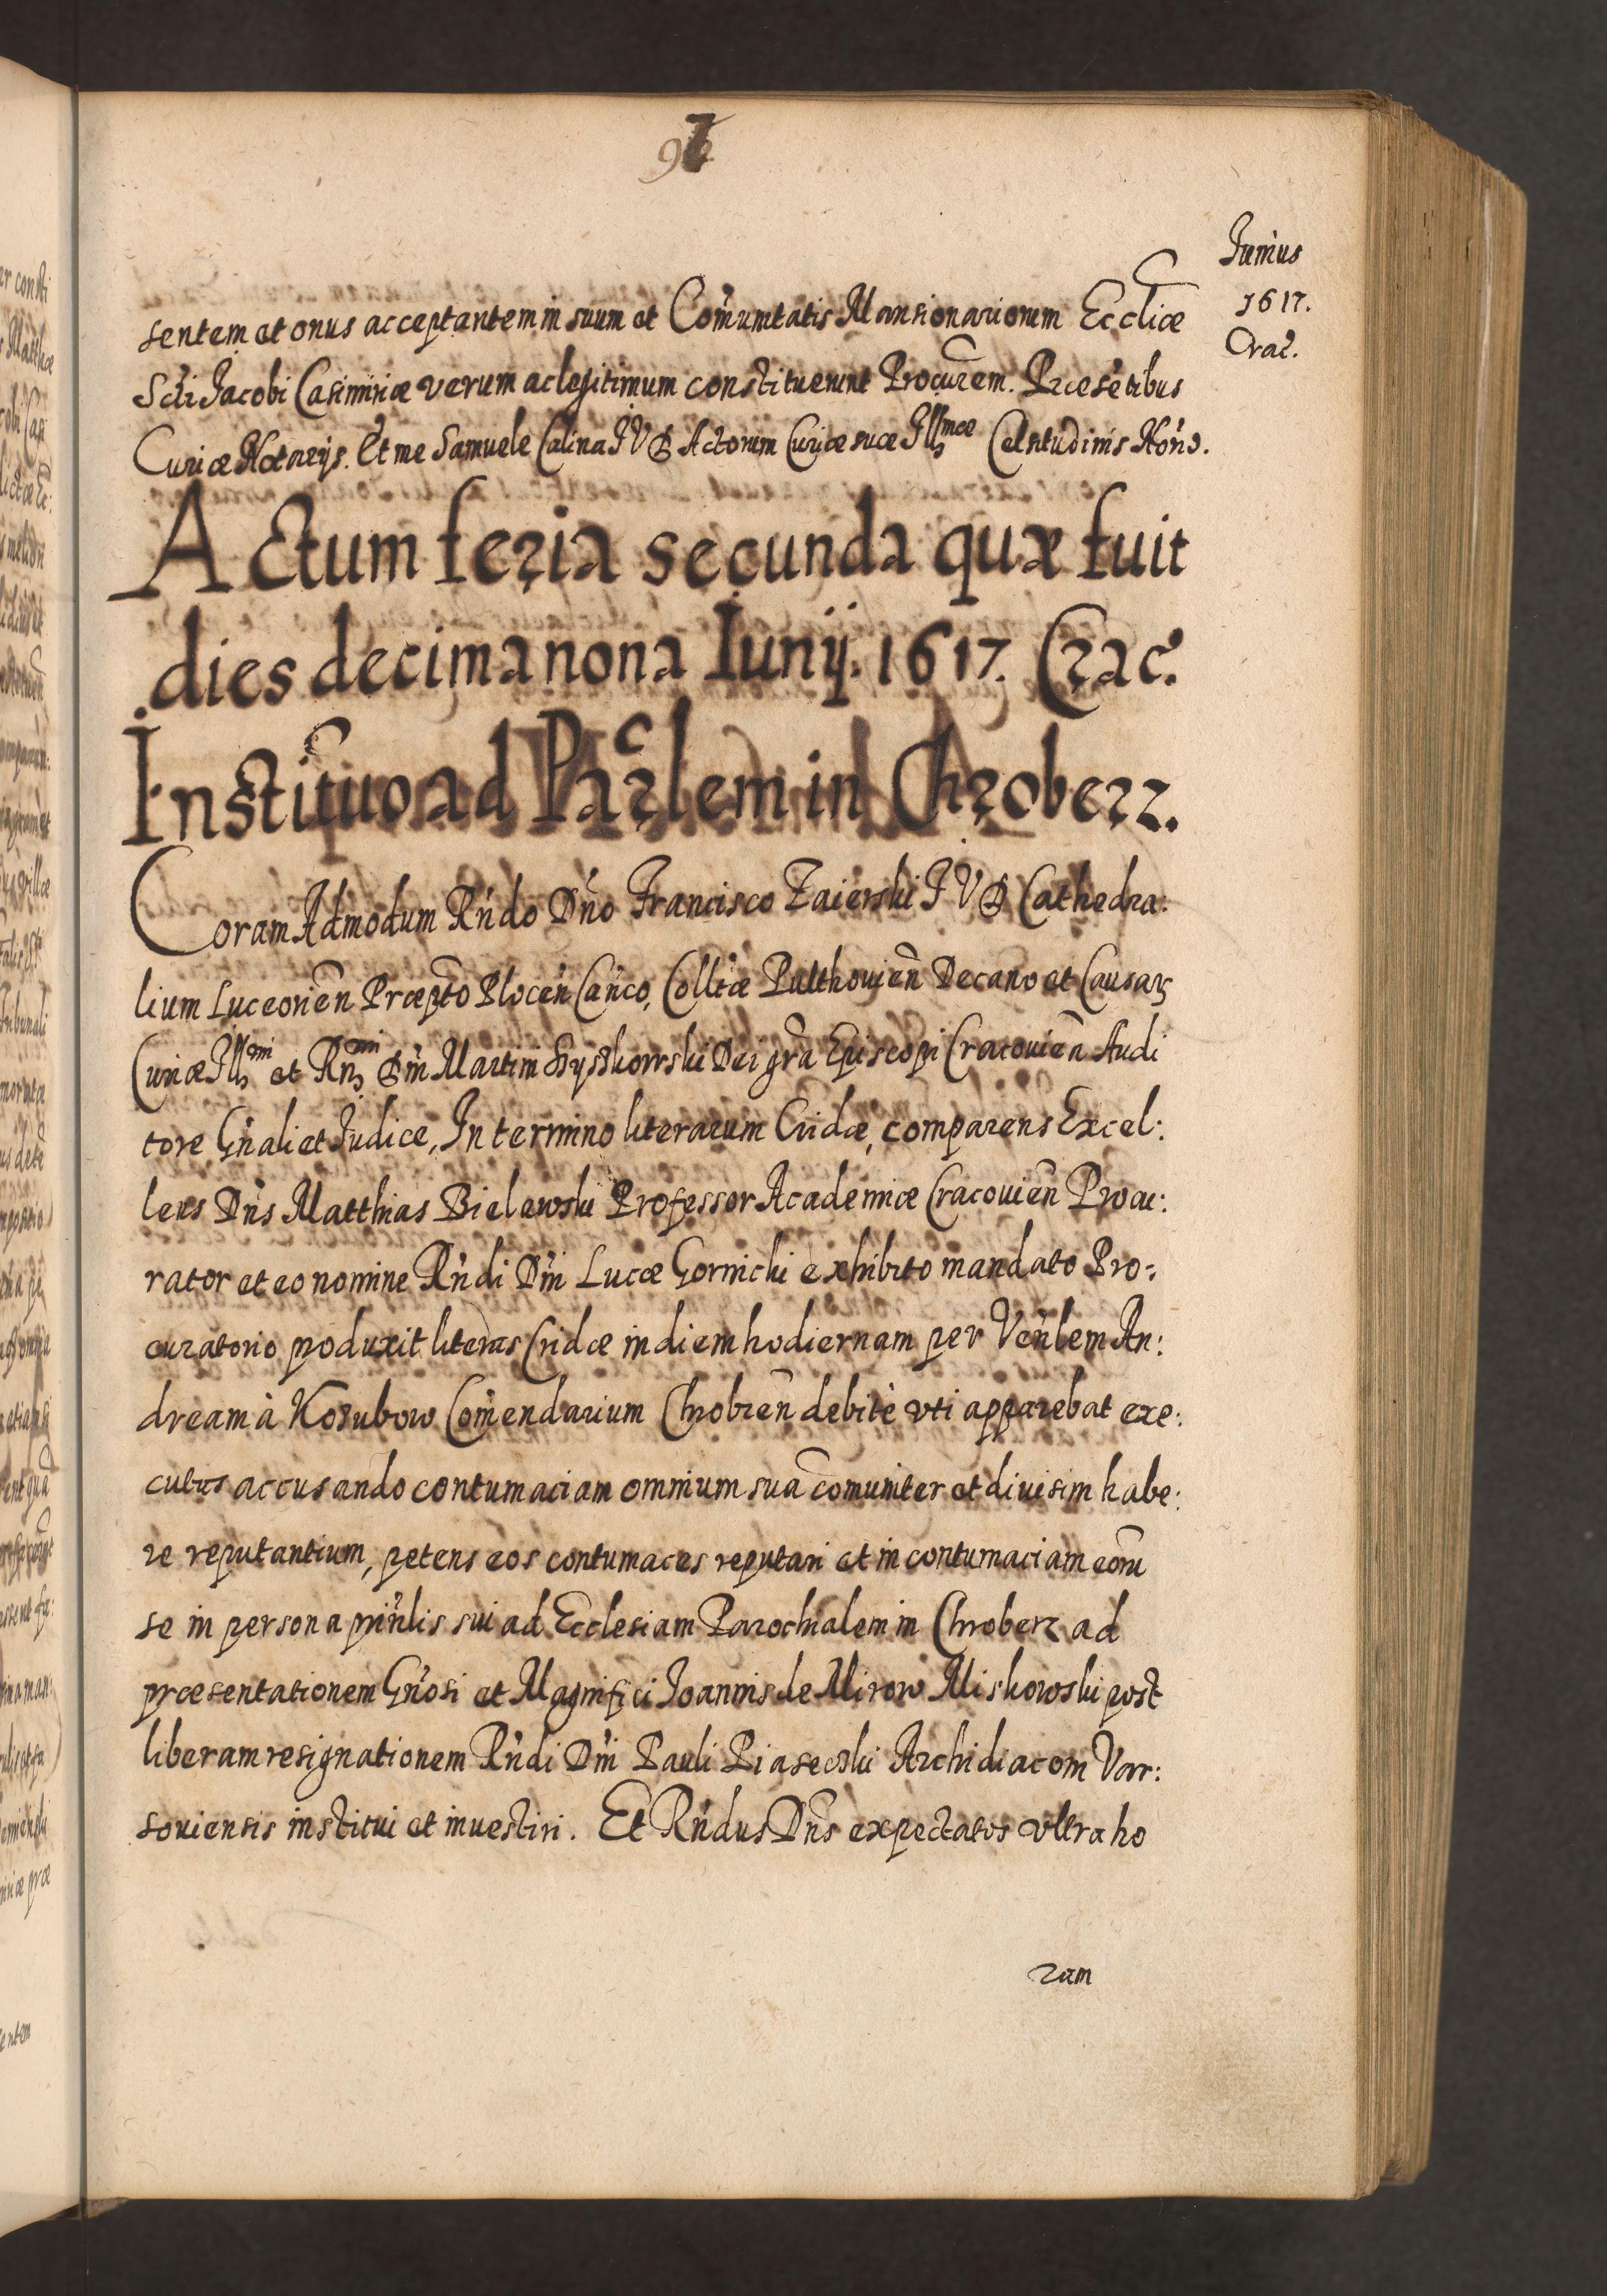 97
Junius
1617.
Crac.
sentem et onus acceptantem in suum et Com̃unitatis Mansionariorum Eccliæ
Scti Jacobi Casimiriæ verum ac legitimum constituerunt Procurem. Præsẽtibus
Curiæ Notarijs. Et me Samuele Calina JVD Actorum Curiæ suæ Illmæ Celsitudinis Nõrio.
Actum feria secunda quæ fuit
dies decima nona Iunij. 1617. Crac.
Institutio ad Parlem in Chroberz.
Coram Admodum Rńdo Dńo Francisco Zaierski JVD Cathedra:
lium Luceorień Præpto Plocen̄ Can̄co, Colltæ Pulthouień Decano et Causarꝝ
Curiæ Illmi et Rnmi Dńi Martini Szyszkowski Dei gr̃a Episcopi Cracouień Audi
tore Gńali et Judice, In termino literarum Cridæ, comparens Excel:
lens Dńs Matthias Bielewski Professor Academiæ Cracouień Procu:
rator et eo nomine Rńdi Dńi Lucæ Gornicki exhibito mandato Pro:
curatorio produxit literas Cridæ in diem hodiernam per Veńlem An:
dream à Kozubow Com̃endarium Chrobreń debitè vti apparebat exe:
cutas accusando contumaciam omnium suã com̃uniter et diuisim habe:
re reputantium, petens eos contumaces reputari et in contumaciam eorũ
se in persona prińlis sui ad Ecclesiam Parochialem in Chroberz ad
præsentationem Gńosi et Magnifici Joannis de Mirow Miskowski post
liberam resignationem Rńdi Dńi Pauli Piasecki Archidiaconi Var:
souiensis institui et inuestiri. Et Rńdus Dńs expectatos vltra ho
ram